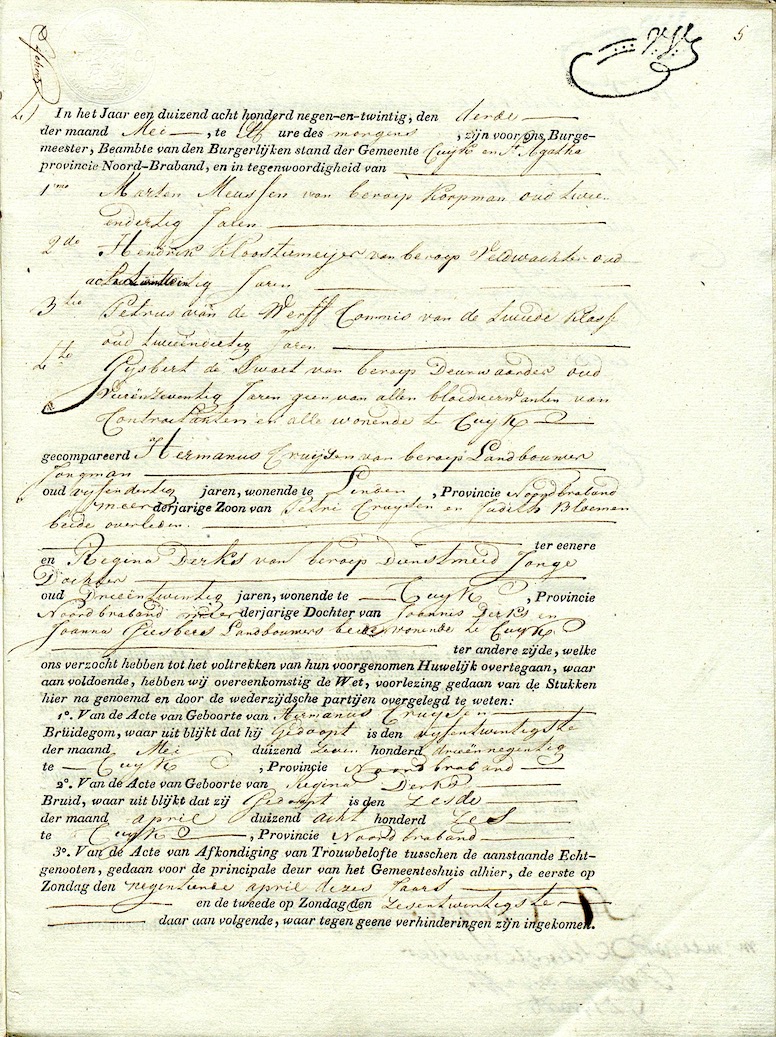 5
4)
In het Jaar een duizend acht honderd negen-en-twintig, den derde
der maand Mei, te Elf ure des morgens, zijn voor ons, Burge-
meester, Beambte van den Burgerlijken stand der Gemeente Cuijk en St Agatha
provincie Noord-Braband, en in tegenwoordigheid van
1mo Marten Meussen van beroep Koopman oud twee
endertig Jaren
2do Hendrik Kloostermeijer van beroep Veldwachter oud
Jaren
3tio Petrus van de Werff Commis van de tweede Klasse
oud tweeëndertig Jaren
4to Gijsbert de Swart van beroep Deurwaarder oud
Vierënzeventig Jaren geen van allen bloedverwanten van
Contractanten en alle wonende te Cuijk
gecompareerd Hermanus Cruijsen van beroep Landbouwer
Jongman
oud vijfendertig jaren, wonende te Linden, Provincie Noordbraband
meerderjarige Zoon van Petri Cruijsen en Judith Bloemen
beide overleden.
ter eenere
en Regina Derks van beroep Dienstmeid Jonge
Dochter
oud Drieëntwintig jaren, wonende te Cuijk, Provincie
Noordbraband meerderjarige Dochter van Joannis Derks en
Joanna Giesbers Landbouwers beide wonende te Cuijk
ter andere zijde, welke
ons verzocht hebben tot het voltrekken van hun voorgenomen Huwelijk overtegaan, waar
aan voldoende, hebben wij overeenkomstig de Wet, voorlezing gedaan van de Stukken
hier na genoemd en door de wederzijdsche partijen overgelegd te weten:
1o. Van de Acte van Geboorte van Hermanus Cruijsen
Bruidegom, waar uit blijkt dat hij Gedoopt is den vijfentwintigste
der maand Mei duizend zeven honderd drieënnegentig
te Cuijk, Provincie Noordbraband
2o. Van de Acte van Geboorte van Regina Derks
Bruid, waar uit blijkt dat zij Gedoopt is den Zesde
der maand april duizend acht honderd Zes
te Cuijk, Provincie Noordbraband
3o. Van de Acte van Afkondiging van Trouwbelofte tusschen de aanstaande Echt-
genooten, gedaan voor de principale deur van het Gemeenteshuis alhier, de eerste op
Zondag den negentiende april dezes Jaars
en de tweede op Zondag den Zesentwintigste
daar aan volgende, waar tegen geene verhinderingen zijn ingekomen.